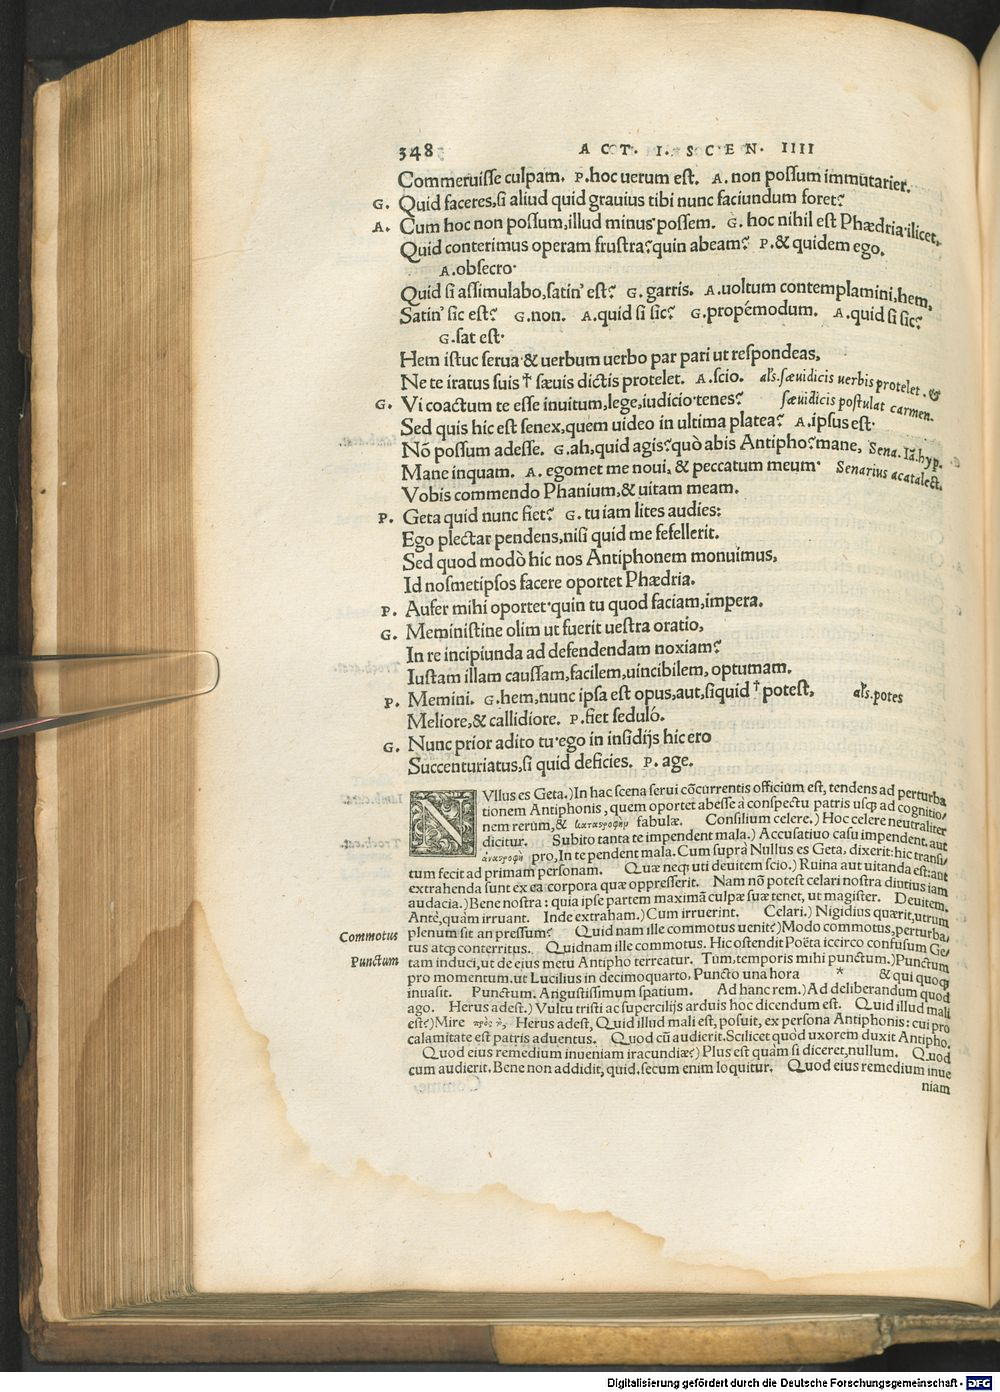 348 ACT. I. SCEN. IIII
Commeruisse culpam. P. hoc uerum est. A. non possum immutarier.
G. Quid faceres, si aliud quid grauius tibi nunc faciundum foret?
A. Cum hoc non possum, illud minus possem. G. hoc nihil est Phædria·ilicet,
Quid conterimus operam frustra? quin abeam? P. & quidem ego.
A. obsecro·
Quid si assimulabo, satin' est? G. garris. A. uoltum contemplamini, hem,
Satin' sic est? G. non. A. quid si sic? G. propémodum. A. quid si sic?
G. sat est·
Hem istuc serua·& uerbum uerbo par pari ut respondeas,
Ne te iratus suis † sæuis dictis protelet. A. scio. al's. sæuidicis uerbis protelet. &
G. Vi coactum te esse inuitum, lege, iudicio·tenes? sæuidicis postulat carmen.
Sed quis hic est senex, quem uideo in ultima platea? A. ipsus est·
Nõ possum adesse. G. ah, quid agis? quò abis Antipho? mane, Sena. Iã. hyp.
Mane inquam. A. egomet me noui, & peccatum meum· Senarius acatalect.
Vobis commendo Phanium, & uitam meam.
P. Geta quid nunc fiet? G. tu iam lites audies:
Ego plectar pendens, nisi quid me fefellerit.
Sed quod modò hic nos Antiphonem monuimus,
Id nosmetipsos facere oportet Phædria.
P. Aufer mihi oportet·quin tu quod faciam, impera.
G. Meministine olim ut fuerit uestra oratio,
In re incipiunda ad defendendam noxiam?
Iustam illam caussam, facilem, uincibilem, optumam.
P. Memini. G. hem, nunc ipsa est opus, aut, siquid † potest, al's. potes
Meliore, & callidiore. P. fiet seduló.
G. Nunc prior adito tu·ego in insidijs hic ero
Succenturiatus, si quid deficies. P. age.
NVllus es Geta.) In hac scena serui cõcurrentis officium est, tendens ad perturba
tionem Antiphonis, quem oportet abesse à conspectu patris usq; ad cognitio/
nem rerum, & fabulæ. Consilium celere.) Hoc celere neutraliter
dicitur. Subito tanta te impendent mala.) Accusatiuo casu impendent. aut
pro, In te pendent mala. Cum suprà Nullus es Geta, dixerit: hic transi/
tum fecit ad primam personam. Quæ neq; uti deuitem scio.) Ruina aut uitanda est: aut
extrahenda sunt ex ea corpora quæ oppresserit. Nam nõ potest celari nostra diutius iam
audacia.) Bene nostra: quia ipse partem maximã culpæ suæ tenet, ut magister. Deuitem.
Antè, quàm irruant. Inde extraham.) Cum irruerint. Celari.) Nigidius quærit, utrum
Commotus plenum sit an pressum? Quid nam ille commotus uenit?) Modo commotus, perturba/
tus atq; conterritus. Quidnam ille commotus. Hic ostendit Poëta iccirco confusum Ge/
Punctum tam induci, ut de eius metu Antipho terreatur. Tum, temporis mihi punctum.) Punctum
pro momentum. ut Lucilius in decimoquarto, Puncto una hora * & qui quoq;
inuasit. Punctum. Angustissimum spatium. Ad hanc rem.) Ad deliberandum quod
ago. Herus adest.) Vultu tristi ac supercilijs arduis hoc dicendum est. Quid illud mali
est?) Mire Herus adest, Quid illud mali est, posuit, ex persona Antiphonis: cui pro
calamitate est patris aduentus. Quod cũ audierit. Scilicet quòd uxorem duxit Antipho.
Quod eius remedium inueniam iracundiæ?) Plus est quàm si diceret, nullum. Quod
cum audierit. Bene non addidit, quid. secum enim loquitur. Quod eius remedium inue
niam
Digitalisierung gefördert durch die Deutsche Forschungsgemeinschaft - DFG